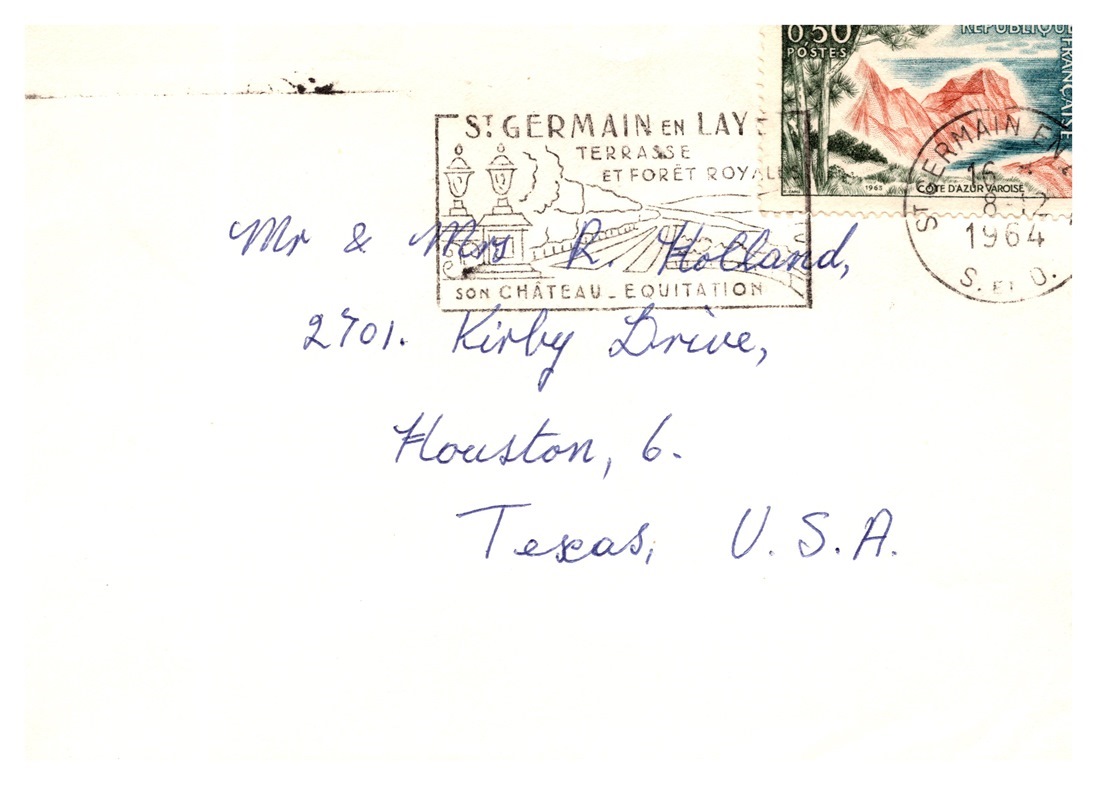 0.50
POSTES
RÉPUBLIQUE
FRANÇAISE
1963
CÔTE D'AZUR VAROISE
ST GERMAIN EN LAY
TERRASSE
ET FORÊT ROYALES
SON CHÂTEAU _ EQUITATION
ST GERMAIN EN
16
8-12
1964
S. ET O.
Mr & Mrs R. Holland,
2701. Kirby Drive,
Houston, 6.
Texas, U.S.A.